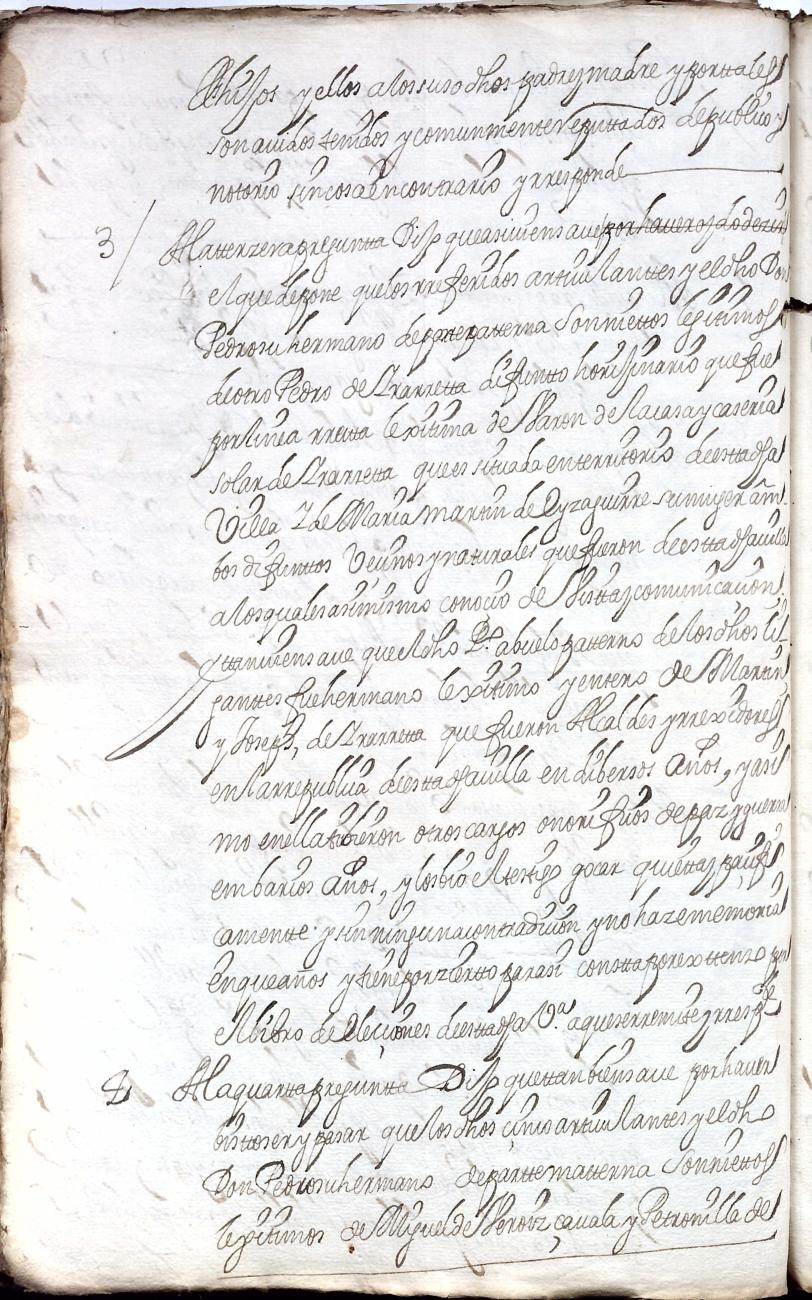 hijos y ellos a los suso dhos padre y madre y por tales
son auidos tenidos y comunmente rreputtados de publico y
notorio sin cosa en contrario y rresponde
3 A la tterzera preguntta Dijo que asi uien saue por hauer oydo dezir
el que depone que los rreferidos artticulanttes y el dho Don
Pedro su hermano de partte patterna son niettos lejitimos
de otro Pedro de Yrarretta difuntto horijinario que fue
por linea rretta lexitima de Varon de la casa y caseria
solar de Yrarretta que es situada en territorio de estta dha
Villa Y de Maria Martin de Eyzaguirre su muger am
bos difunttos Vecinos y naturales que fueron de estta dha uilla
a los quales asimismo conocio de Vistta y comunicacion
y ttanuien saue que el dho Po. abuelo patterno de los dhos liti
ganttes fue hermano lexitimo y entero de Martin
y Joseph, de Yrarretta que fueron Alcaldes y rrexidores
en la rrepublica de estta dha uilla en dibersos años, y asi
mo en ella tubieron otros cargos onorificos de paz y guerra
em barios años, y los bio el testigo goçar quietta y pacifi
camente y sin ninguna contradicion y no haze memoria
en que años y tiene por zierto parasi constta por extenso por
el libro de Eleciones de estta dha Va. a que se rremite y rrespde
4 A la quartta preguntta Dijo que ttanbien saue por hauer
bistto ser y pasar que los dhos cinco articulantes y el dho
Don Pedro su hermano de partte matterna son niettos
lexitimos de Miguel de Veroiz çauala y Petronilla de